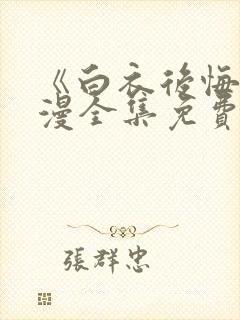 《白衣後悔
漫全集免費
張群忠